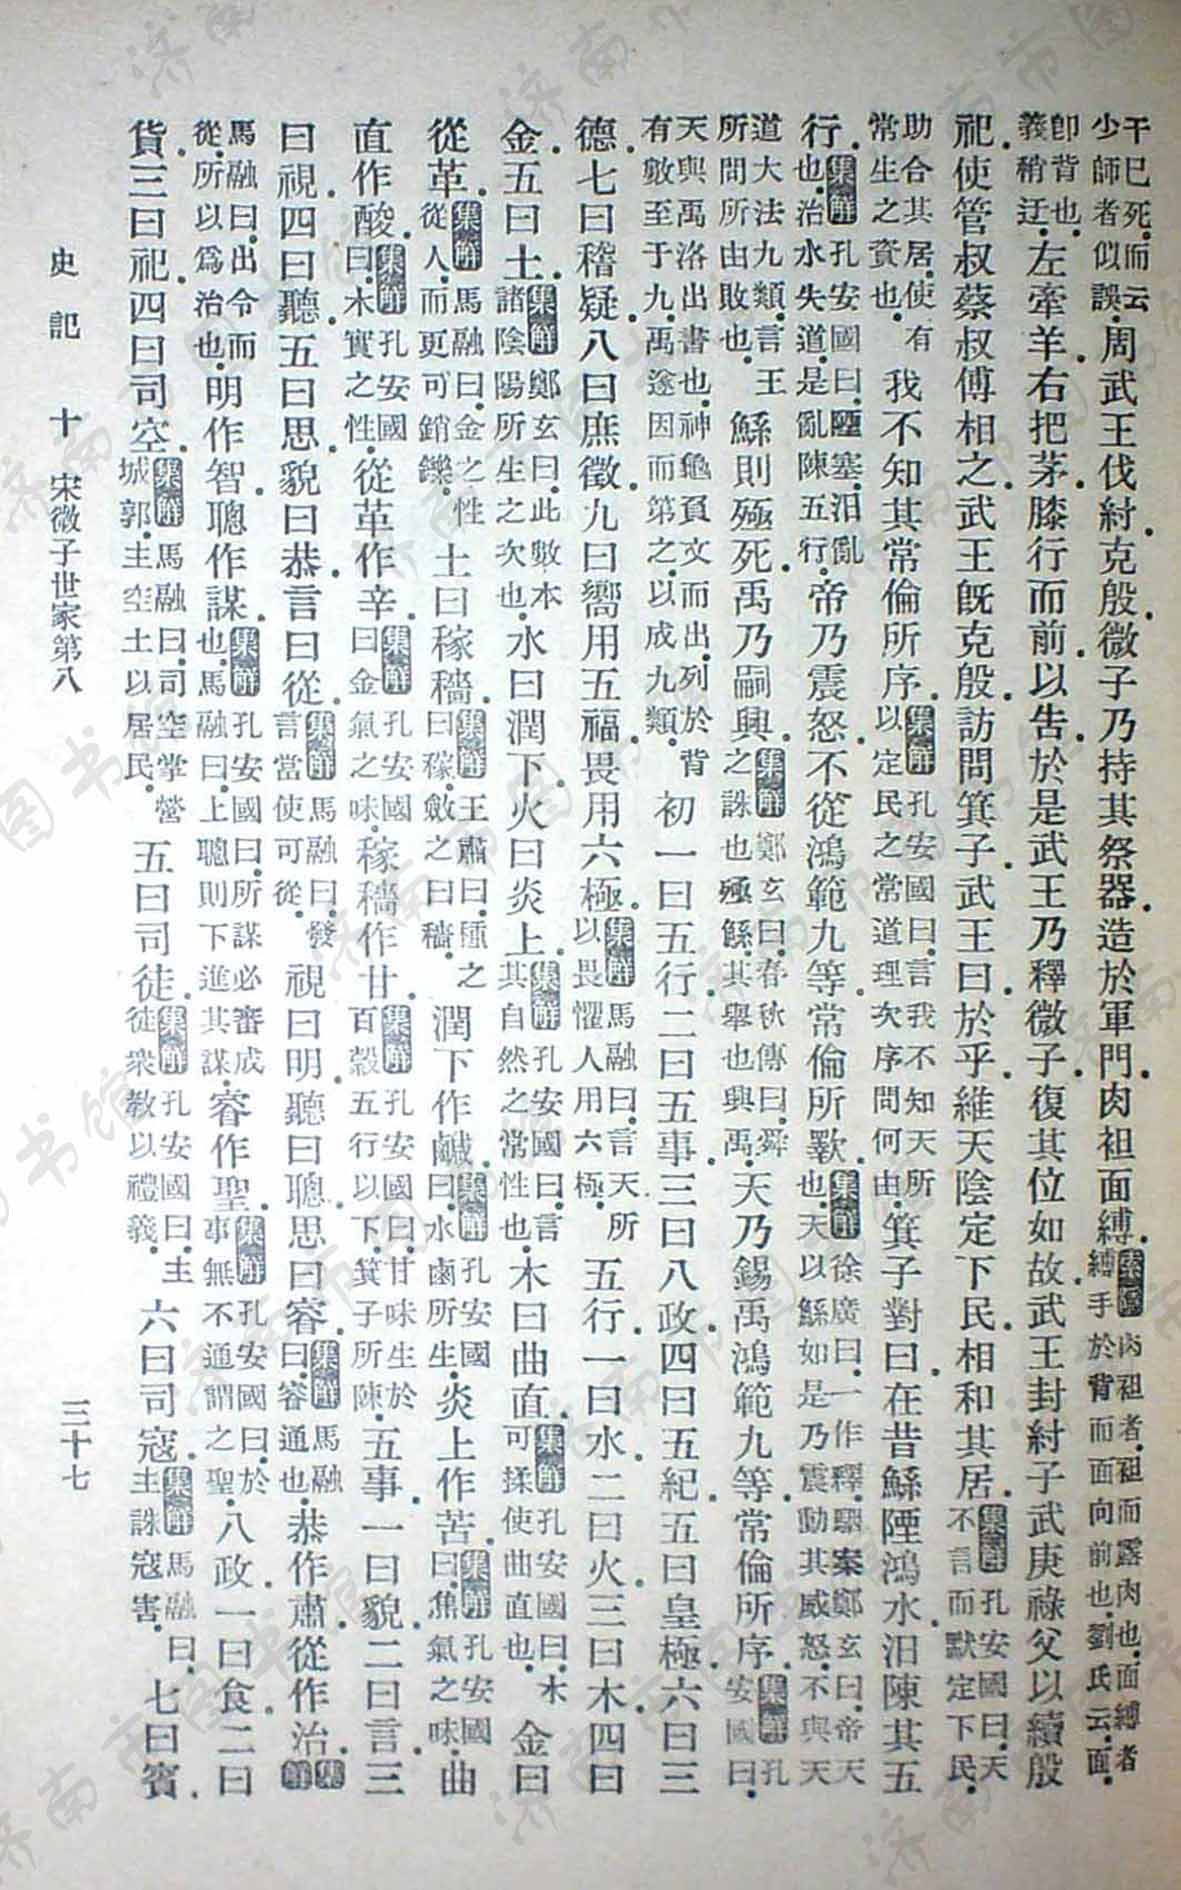 干已死而云少師者似誤。周武王伐紂。克殷。微子乃持其祭器。造於軍門。肉袒面縛。索隱肉袒者。袒而露肉也。面縛者縛手於背而面向前也。劉氏云。面
即背也。義稍迂。左牽羊。右把茅。膝行而前以告。於是武王乃釋微子。復其位如故。武王封紂子武庚祿父以續殷
祀。使管叔蔡叔傅相之。武王既克殷。訪問箕子。武王曰。於乎。維天陰定下民。相和其居。集解孔安國曰。天不言而默定下民。
助合其居。使有常生之資也。我不知其常倫所序。集解孔安國曰。言我不知天所以定民之常道理次序。問何由。箕子對曰。在昔鯀陻鴻水。汨陳其五
行。集解孔安國曰。陻塞。汨亂也。治水失道。是亂陳五行。帝乃震怒。不從鴻範九等。常倫所斁。集解徐廣曰。一作釋。駰案鄭玄曰。帝天也。天以鯀如是。乃震動其威怒。不與天
道大法九類。言王所問所由敗也。鯀則殛死。禹乃嗣興。集解鄭玄曰。春秋傳曰。舜之誅也殛鯀。其舉也興禹。天乃錫禹鴻範九等。常倫所序。集解孔安國曰。
天與禹洛出書也。神龜負文而出。列於背。有數至于九。禹遂因而第之。以成九類。初一曰五行。二曰五事。三曰八政。四曰五紀。五曰皇極。六曰三
德。七曰稽疑。八曰庶徵。九曰嚮用五福。畏用六極。集解馬融曰。言天所以畏懼人用六極。五行。一曰水。二曰火。三曰木。四曰
金。五曰土。集解鄭玄曰。此數本諸陰陽所生之次也。水曰潤下。火曰炎上。集解孔安國曰。言其自然之常性也。木曰曲直。集解孔安國曰。木可揉使曲直也。金曰
從革。集解馬融曰。金之性從人。而更可銷鑠。土曰稼穡。集解王肅曰。種之曰稼。斂之曰穡。潤下作鹹。集解孔安國曰。水鹵所生。炎上作苦。集解孔安國曰。焦氣之味。曲
直作酸。集解孔安國曰。木實之性。從革作辛。集解孔安國曰。金氣之味。稼穡作甘。集解孔安國曰。甘味生於百穀。五行以下。箕子所陳。五事。一曰貌。二曰言。三
曰視。四曰聽。五曰思。貌曰恭。言曰從。集解馬融曰。發言當使可從。視曰明。聽曰聰。思曰睿。集解馬融曰。睿通也。恭作肅。從作治。集解
馬融曰。出令而從。所以爲治也。明作智。聰作謀。集解孔安國曰。所謀必審成也。馬融曰。上聰則下進其謀。睿作聖。集解孔安國曰。於事無不通謂之聖。八政。一曰食。二曰
貨。三曰祀。四曰司空。集解馬融曰。司空掌營城郭。主空土以居民。五曰司徒。集解孔安國曰。主徒衆教以禮義。六曰司寇。集解馬融曰。主誅寇害。七曰賓。
史記 十 宋微子世家第八 三十七
济南市图书馆